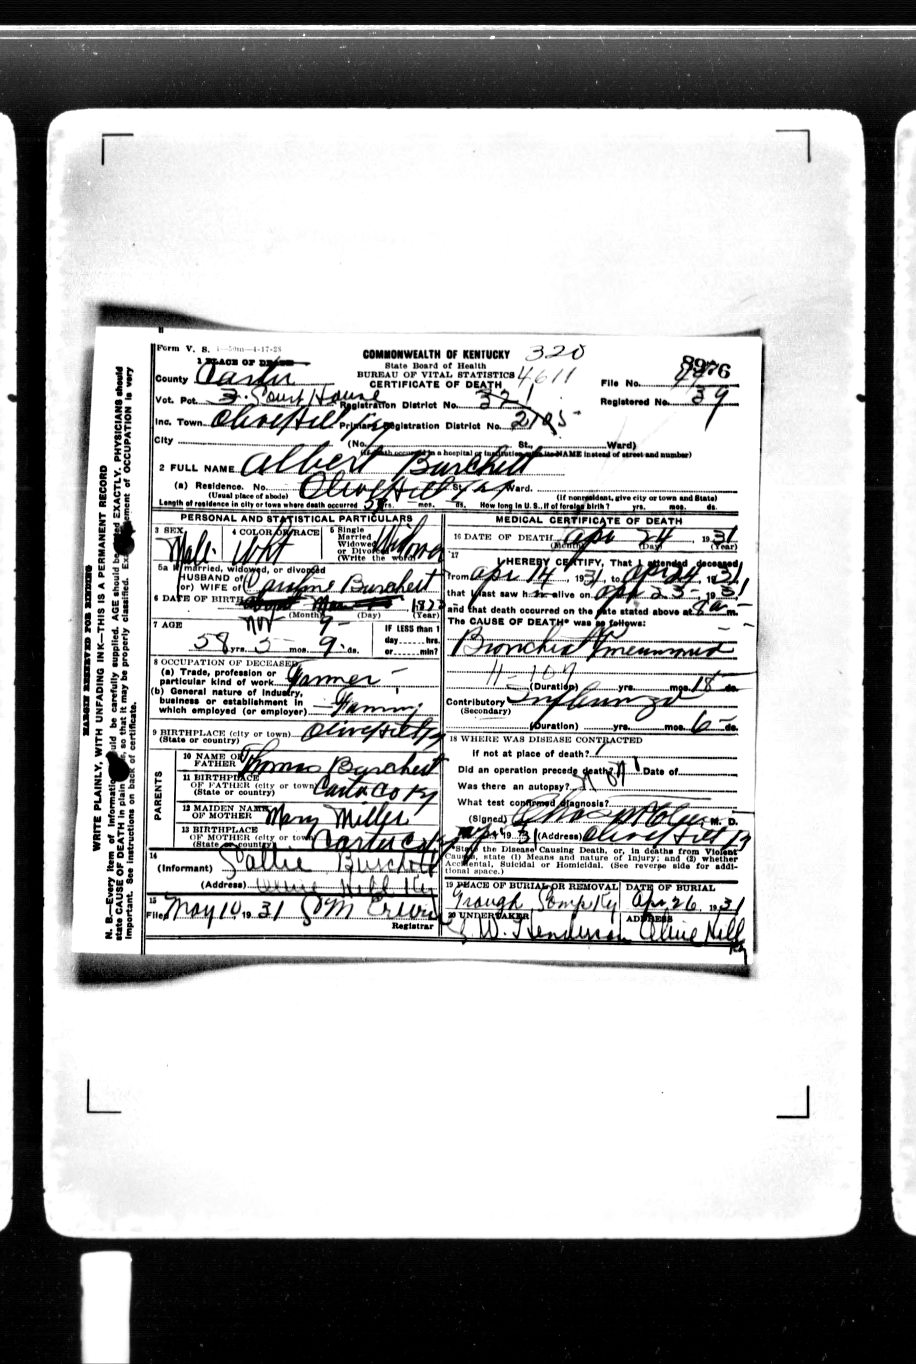 Form V. S. 1—50m—4-17-28
COMMONWEALTH OF KENTUCKY 320
State Board of Health
BUREAU OF VITAL STATISTICS 4611
CERTIFICATE OF DEATH
File No. 8976
Registered No. 39
1 PLACE OF DEATH
County Carter
Vot. Pct. 3. Court House Registration District No. 321
Inc. Town Olive Hill Ky Primary Registration District No. 2195
City (No. St., Ward)
(If death occurred in a hospital or institution, give its NAME instead of street and number)
2 FULL NAME Albert Burchett
(a) Residence. No. Olive Hill Ky St., Ward.
(Usual place of abode) (If nonresident, give city or town and State)
Length of residence in city or town where death occurred 58 yrs. mos. ds. How long in U. S., if of foreign birth? yrs. mos. ds.
PERSONAL AND STATISTICAL PARTICULARS
3 SEX Male
4 COLOR OR RACE Wht
5 Single Married Widowed or Divorced (Write the word) Widower
5a If married, widowed, or divorced
HUSBAND of
(or) WIFE of Caroline Burchett
6 DATE OF BIRTH Nov 9- 1872
(Month) (Day) (Year)
7 AGE 58 yrs. 5- mos. 9. ds.
IF LESS than 1 day hrs. or min?
8 OCCUPATION OF DECEASED
(a) Trade, profession or particular kind of work Farmer-
(b) General nature of industry, business or establishment in which employed (or employer) Farming
9 BIRTHPLACE (city or town) Olive Hill Ky
(State or country)
PARENTS
10 NAME OF FATHER Thomas Burchett
11 BIRTHPLACE OF FATHER (city or town) Carter Co Ky
(State or country)
12 MAIDEN NAME OF MOTHER Mary Miller
13 BIRTHPLACE OF MOTHER (city or town) Carter Co Ky
(State or country)
14
(Informant) Sallie Burchett
(Address) Olive Hill Ky
15
Filed May 10 1931 Registrar
MEDICAL CERTIFICATE OF DEATH
16 DATE OF DEATH Apr 24, 1931
(Month) (Day) (Year)
17 I HEREBY CERTIFY, That I attended deceased
from Apr 14, 1931, to Apr 24, 1931
that I last saw h im alive on Apr 23-, 1931
and that death occurred on the date stated above at 9 a m.
The CAUSE OF DEATH* was as follows:
Bronchial Pneumonia
(Duration) yrs. mos. 18 ds.
Contributory Influenza
(Secondary)
(Duration) yrs. mos. 6- ds.
18 WHERE WAS DISEASE CONTRACTED
If not at place of death?
Did an operation precede death? Date of
Was there an autopsy?
What test confirmed diagnosis?
(Signed) M. D.
1931 (Address) Olive Hill Ky
*State the Disease Causing Death, or, in deaths from Violent
Causes, state (1) Means and nature of Injury; and (2) whether
Accidental, Suicidal or Homicidal. (See reverse side for additional space.)
19 PLACE OF BURIAL OR REMOVAL DATE OF BURIAL
Ky Apr 26, 1931
20 UNDERTAKER ADDRESS
J W. Henderson Olive Hill Ky
MARGIN RESERVED FOR BINDING
WRITE PLAINLY, WITH UNFADING INK—THIS IS A PERMANENT RECORD
N. B.—Every item of information should be carefully supplied. AGE should be stated EXACTLY. PHYSICIANS should
state CAUSE OF DEATH in plain terms, so that it may be properly classified. Exact statement of OCCUPATION is very
important. See instructions on back of certificate.